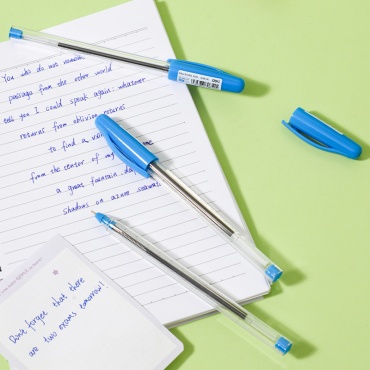 You who do not
passage from the other world
tell you I could speak again: whatever
returns from oblivion returns
to find a
from the center of my
a great fountain, deep
shadows on azure seawater
Don't forget that there
are two exams tomorrow!